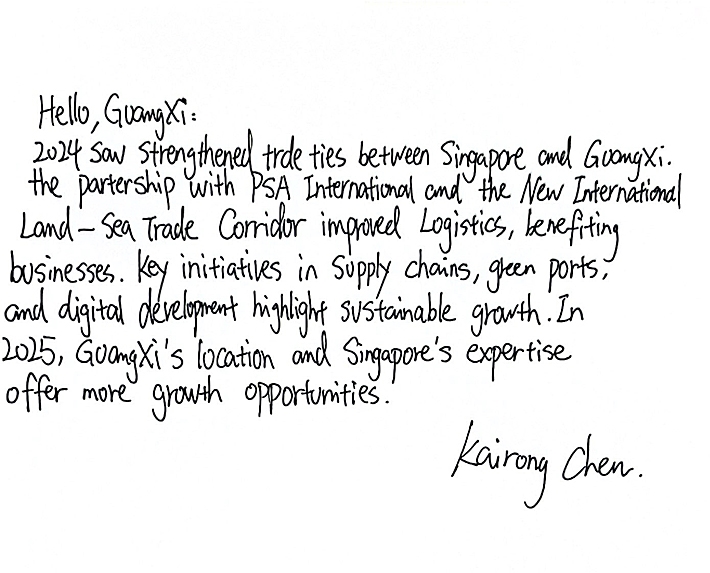 Hello, GuangXi:
2024 saw strengthened trde ties between Singapore and GuangXi.
the partership with PSA International and the New International
Land-Sea Trade Corridor improved Logistics, benefiting
businesses. Key initiatives in supply chains, green ports,
and digital development highlight sustainable growth. In
2025, GuangXi's location and Singapore's expertise
offer more growth opportunities.
Kairong Chen.